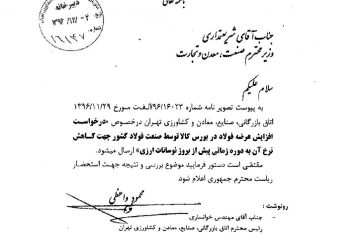 باسمه تعالی
دبیرخانه
۱۶۱۴۷
جناب آقای شریعتمداری
وزیر محترم صنعت، معدن و تجارت
سلام علیکم
به پیوست تصویر نامه شماره ۹۶/۱۶۰۲۲/الف‌ت مورخ ۱۳۹۶/۱۱/۲۹
اتاق بازرگانی، صنایع، معادن و کشاورزی تهران درخصوص «درخواست
افزایش عرضه فولاد در بورس کالا توسط صنعت فولاد کشور جهت کاهش
نرخ آن به دوره زمانی پیش از بروز نوسانات ارزی» ارسال میشود.
مقتضی است دستور فرمایید موضوع بررسی و نتیجه جهت استحضار
ریاست محترم جمهوری اعلام شود.
محمود واعظی
رونوشت :
جناب آقای مهندس خوانساری
رئیس محترم اتاق بازرگانی، صنایع، معادن و کشاورزی تهران